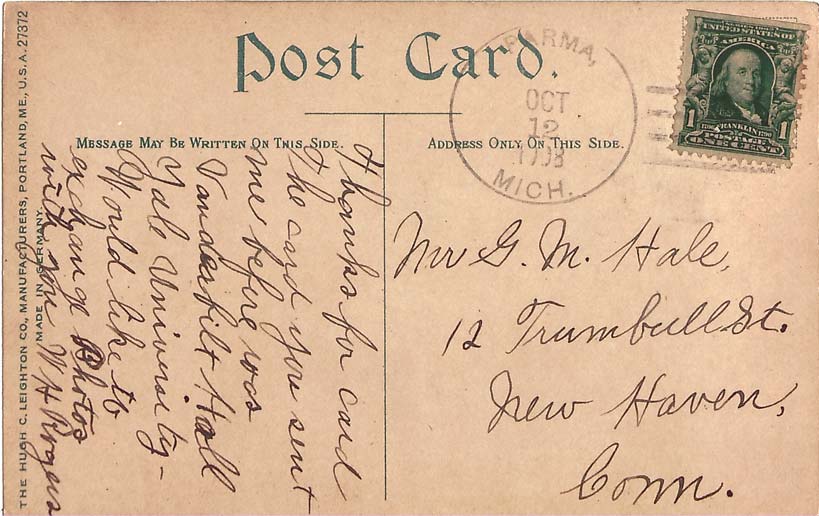 Post Card.
MESSAGE MAY BE WRITTEN ON THIS SIDE.
ADDRESS ONLY ON THIS SIDE.
PARMA,
OCT
12
1908
MICH.
SERIES 1902
UNITED STATES OF
AMERICA
1706 FRANKLIN 1790
1 POSTAGE 1
ONE CENT
Thanks for card
The card you sent
me before was
Vanderbilt Hall
Yale University-
Would like to
exchange Photos
with you W H Rogers
Mr G. M. Hale,
12 Trumbull St.
New Haven,
Conn.
THE HUGH C. LEIGHTON CO., MANUFACTURERS, PORTLAND, ME., U.S.A. 27372
MADE IN GERMANY.